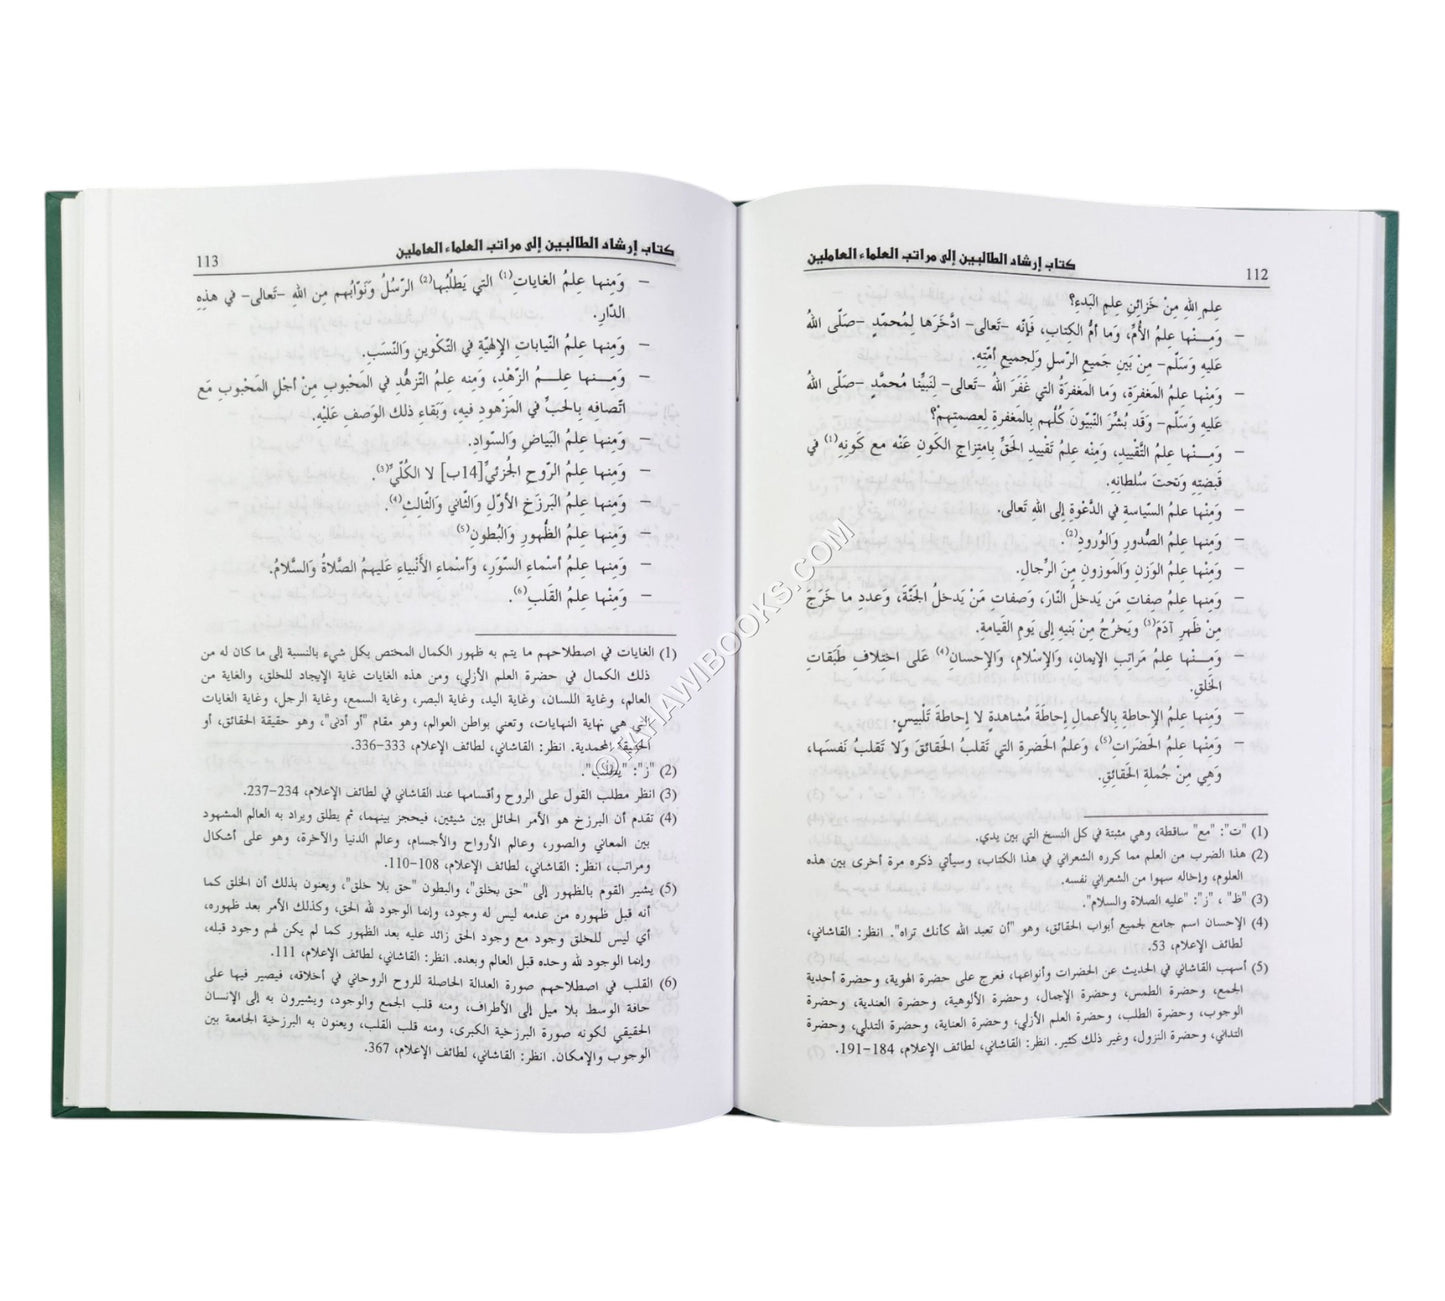 كتاب إرشاد الطالبين إلى مراتب العلماء العاملين
112
عِلمِ اللهِ مِنْ خَزائنِ عِلمِ البَدءِ؟
– وَمِـنْها عِلمُ الأُمِّ، وَما أمُّ الكِتابِ، فَإنّه –تَعالى– ادَّخَرَها لِمُحمّدٍ –صَلّى اللهُ
عَليهِ وَسَلّم– مِنْ بَينِ جَميعِ الرّسلِ وَلِجَميعِ أمّتِهِ.
– وَمِنْها عِلمُ المَغفرَةِ، وَما المَغفرَةُ التي غَفرَ اللهُ –تَعالى– لِنَبيِّنا مُحمَّدٍ –صَلّى اللهُ
عَليهِ وَسَلّم– وَقَد بُشِّرَ النّبيّونَ كُلُّهم بِالمَغفرةِ لِعِصمتِهِمْ؟
– وَمِـنْها عِلمُ التَّقْييدِ، وَمِنْه عِلمُ تَقْييدِ الحَقِّ بِامتِزاجِ الكَونِ عَنْه مع كَونِهِ(1) في
قَبضَتِهِ وَتحتَ سُلطانِهِ.
– وَمِنْها عِلمُ السّياسَةِ في الدَّعْوةِ إلى اللهِ تَعالى.
– وَمِنها عِلمُ الصُّدورِ وَالوُرودِ(2).
– وَمِنْها عِلمُ الوَزنِ وَالمَوزونِ مِنَ الرّجالِ.
– وَمِنْها عِلمُ صِفاتِ مَن يَدخلُ النّارَ، وَصِفاتِ مَنْ يَدخلُ الجَنّةَ، وَعَددِ ما خَرَجَ
مِنْ ظَهرِ آدَمَ(3) وَيَخرُجُ مِنْ بَنيهِ إلى يَومِ القَيامَةِ.
– وَمِـنْها عِلمُ مَراتبِ الإيمانِ، وَالإسْلامِ، وَالإحسان(4) عَلى اختِلافِ طَبَقاتِ
الخَلقِ.
– وَمِنها عِلمُ الإحاطَةِ بِالأعمالِ إحاطَةَ مُشاهدةٍ لا إحاطَةَ تَلْبيسٍ.
– وَمِنْها عِلمُ الحَضَرات(5)، وَعَلمُ الحَضرةِ التي تَقلبُ الحَقائقَ وَلا تَقلبُ نَفسَها،
وَهِي مِنْ جُملةِ الحَقائقِ.
(1) "ت": "مع" ساقطة، وهي مثبتة في كل النسخ التي بين يدي.
(2) هذا الضرب من العلم مما كرره الشعراني في هذا الكتاب، وسيأتي ذكره مرة أخرى بين هذه
العلوم، وإخاله سهوا من الشعراني نفسه.
(3) "ظ" ، "ز": "عليه الصلاة والسلام".
(4) الإحسان اسم جامع لجميع أبواب الحقائق، وهو "أن تعبد الله كأنك تراه". انظر: القاشاني،
لطائف الإعلام، 53.
(5) أسهب القاشاني في الحديث عن الحضرات وأنواعها، فعرج على حضرة الهوية، وحضرة أحدية
الجمع، وحضرة الطمس، وحضرة الإجمال، وحضرة الألوهية، وحضرة العندية، وحضرة
الوجوب، وحضرة الطلب، وحضرة العلم الأزلي، وحضرة العناية، وحضرة التدلي، وحضرة
التداني، وحضرة النزول، وغير ذلك كثير. انظر: القاشاني، لطائف الإعلام، 184–191.
كتاب إرشاد الطالبين إلى مراتب العلماء العاملين
113
– وَمِنها عِلمُ الغاياتِ(1) التي يَطلُبُها(2) الرّسُلُ وَنَوّابُهم مِن اللهِ –تَعالى– في هذِهِ
الدّارِ.
– وَمِنها عِلمُ النّياباتِ الإلهيّةِ في التّكْوينِ وَالنّسَبِ.
– وَمِـنها عِلـمُ الزّهْدِ، وَمِنه عِلمُ التّزهُّدِ في المَحْبوبِ مِنْ أجْلِ المَحْبوبِ مَع
اتّصافِه بِالحبِّ في المَزْهودِ فيهِ، وَبَقاءِ ذلك الوَصفِ عَليْهِ.
– وَمِنها عِلمُ البَياضِ وَالسّوادِ.
– وَمِنها عِلمُ الرّوحِ الجُزئيِّ[14ب] لا الكُلّيِّ(3).
– وَمِنها عِلمُ البَرزَخِ الأوّلِ وَالثّاني وَالثّالِثِ(4).
– وَمِنْها عِلمُ الظُّهورِ وَالبُطونِ(5).
– وَمِنْها عِلمُ أسْماءِ السّوَرِ، وَأسْماءِ الأنْبياءِ عَليهمُ الصَّلاةُ وَالسَّلامُ.
– وَمِنْها عِلمُ القَلبِ(6).
(1) الغايات في اصطلاحهم ما يتم به ظهور الكمال المختص بكل شيء بالنسبة إلى ما كان له من
ذلك الكمال في حضرة العلم الأزلي، ومن هذه الغايات غاية الإيجاد للخلق، والغاية من
العالم، وغاية اللسان، وغاية اليد، وغاية البصر، وغاية السمع، وغاية الرجل، وغاية الغايات
التي هي نهاية النهايات، وتعني بواطن العوالم، وهو مقام "أو أدنى"، وهو حقيقة الحقائق، أو
الحقيقة المحمدية. انظر: القاشاني، لطائف الإعلام، 333–336.
(2) "ز": "يطلب".
(3) انظر مطلب القول على الروح وأقسامها عند القاشاني في لطائف الإعلام، 234–237.
(4) تقدم أن البرزخ هو الأمر الحائل بين شيئين، فيحجز بينهما، ثم يطلق ويراد به العالم المشهود
بين المعاني والصور، وعالم الأرواح والأجسام، وعالم الدنيا والآخرة، وهو على أشكال
ومراتب، انظر: القاشاني، لطائف الإعلام، 108–110.
(5) يشير القوم بالظهور إلى "حق بخلق"، والبطون "حق بلا خلق"، ويعنون بذلك أن الخلق كما
أنه قبل ظهوره من عدمه ليس له وجود، وإنما الوجود لله الحق، وكذلك الأمر بعد ظهوره،
أي ليس للخلق وجود مع وجود الحق زائد عليه بعد الظهور كما لم يكن لهم وجود قبله،
وإنما الوجود لله وحده قبل العالم وبعده. انظر: القاشاني، لطائف الإعلام، 111.
(6) القلب في اصطلاحهم صورة العدالة الحاصلة للروح الروحاني في أخلاقه، فيصير فيها على
حافة الوسط بلا ميل إلى الأطراف، ومنه قلب الجمع والوجود، ويشيرون به إلى الإنسان
الحقيقي لكونه صورة البرزخية الكبرى، ومنه قلب القلب، ويعنون به البرزخية الجامعة بين
الوجوب والإمكان. انظر: القاشاني، لطائف الإعلام، 367.
©TAHAWIBOOKS.COM